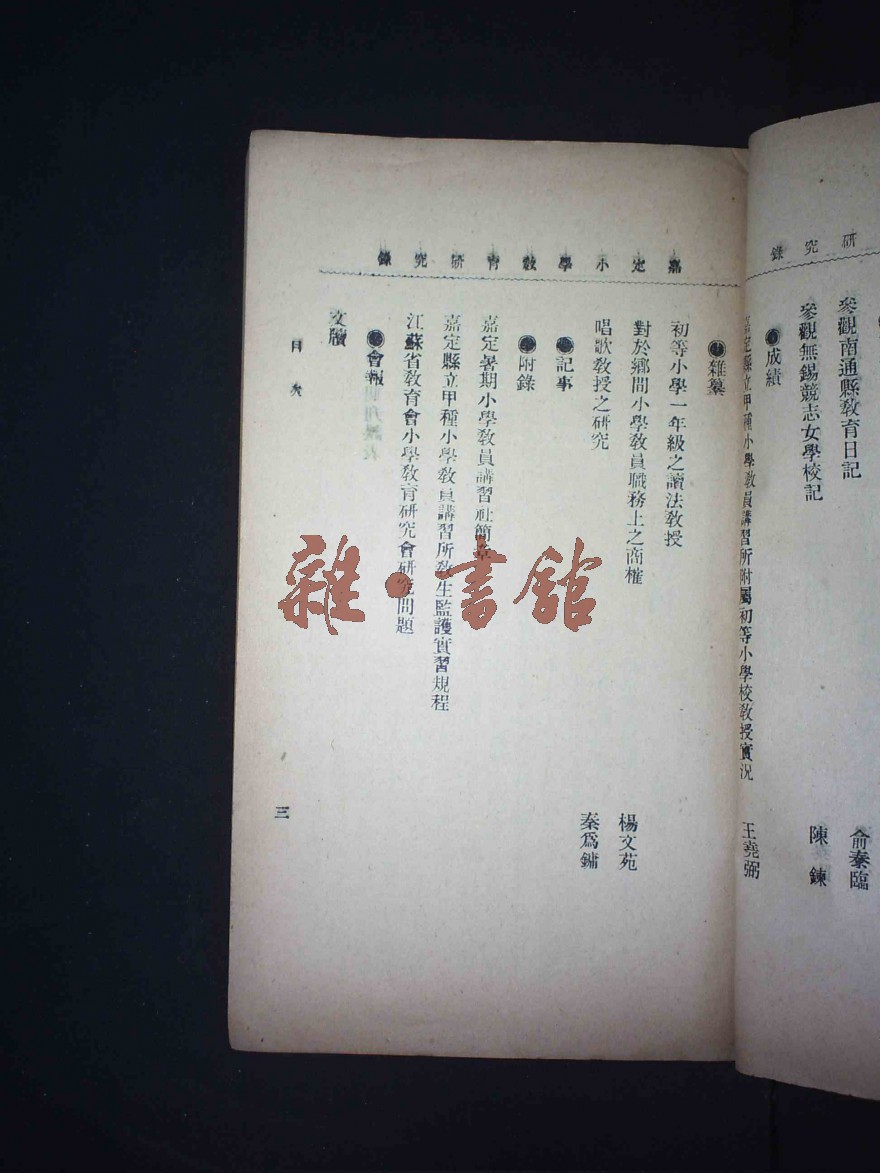 研究錄
參觀南通縣教育日記
俞秦臨
參觀無錫競志女學校記
陳鍊
成績
嘉定縣立甲種小學教員講習所附屬初等小學校教授實況
王堯弼
嘉定小學教育研究錄
雜纂
初等小學一年級之讀法教授
對於鄉間小學教員職務上之商榷
楊文苑
唱歌教授之研究
秦爲鏞
記事
附錄
嘉定暑期小學教員講習社簡章
嘉定縣立甲種小學教員講習所教生監護實習規程
江蘇省教育會小學教育研究會研究問題
會報
文牘
目次
三
雜·書館